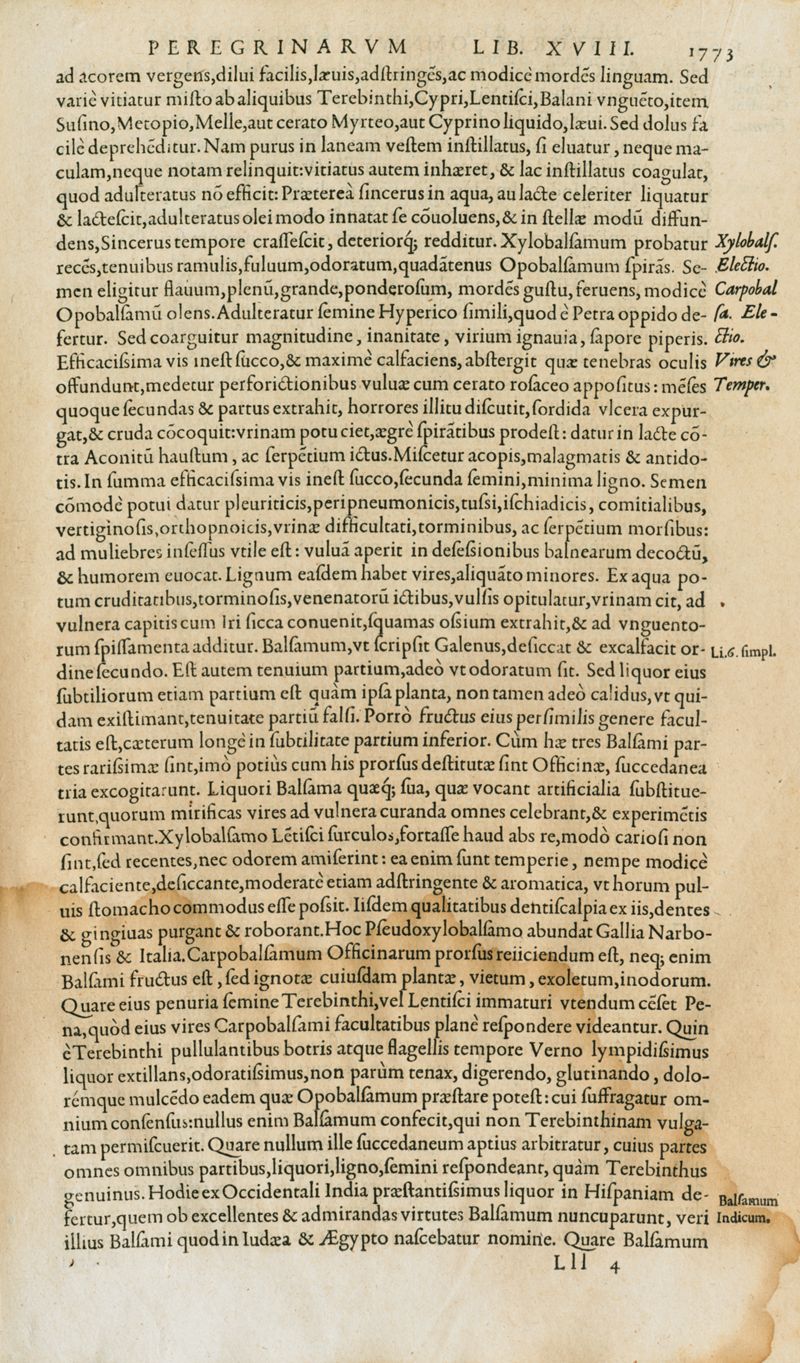 PEREGRINARVM LIB. XVIII. 1773
ad acorem vergens,dilui facilis,læuis,adſtringẽs,ac modicè mordẽs linguam. Sed
variè vitiatur miſto ab aliquibus Terebinthi,Cypri,Lentiſci,Balani vnguẽto,item
Suſino,Metopio,Melle,aut cerato Myrteo,aut Cyprino liquido,læui. Sed dolus fa
cilè deprehẽditur. Nam purus in laneam veſtem inſtillatus, ſi eluatur, neque ma-
culam,neque notam relinquit:vitiatus autem inhæret, & lac inſtillatus coagulat,
quod adulteratus nõ efficit: Præterea ſincerus in aqua, au lacte celeriter liquatur
& lacteſcit,adulteratus olei modo innatat ſe cõuoluens,& in ſtellæ modũ diffun-
dens,Sincerus tempore craſſeſcit, deteriorq́; redditur. Xylobalſamum probatur Xylobalſ.
recẽs,tenuibus ramulis,fuluum,odoratum,quadãtenus Opobalſamum ſpirãs. Se- Electio.
men eligitur flauum,plenũ,grande,ponderoſum, mordẽs guſtu,feruens, modicè Carpobal
Opobalſamũ olens. Adulteratur ſemine Hyperico ſimili,quod è Petra oppido de- ſa. Ele-
fertur. Sed coarguitur magnitudine, inanitate, virium ignauia, ſapore piperis. ctio.
Efficaciſsima vis ineſt ſucco,& maximè calfaciens,abſtergit quæ tenebras oculis Vires &
offundunt,medetur perforictionibus vuluæ cum cerato roſaceo appoſitus: mẽſes Temper.
quoque ſecundas & partus extrahit, horrores illitu diſcutit, ſordida vlcera expur-
gat,& cruda cõcoquit:vrinam potu ciet,ægrè ſpirãtibus prodeſt: datur in lacte cõ-
tra Aconitũ hauſtum, ac ſerpẽtium ictus.Miſcetur acopis,malagmatis & antido-
tis. In ſumma efficaciſsima vis ineſt ſucco,ſecunda ſemini,minima ligno. Semen
cõmodè potui datur pleuriticis,peripneumonicis,tuſsi,iſchiadicis, comitialibus,
vertiginoſis,orthopnoicis,vrinæ difficultati,torminibus, ac ſerpẽtium morſibus:
ad muliebres inſeſſus vtile eſt: vuluã aperit in deſeſsionibus balnearum decoctũ,
& humorem euocat. Lignum eaſdem habet vires,aliquãto minores. Ex aqua po-
tum cruditatibus,torminoſis,venenatorũ ictibus,vulſis opitulatur,vrinam cit, ad
vulnera capitis cum Iri ſicca conuenit,ſquamas oſsium extrahit,& ad vnguento-
rum ſpiſſamenta additur. Balſamum,vt ſcripſit Galenus,deſiccat & excalfacit or- Li.6. ſimpl.
dine ſecundo. Eſt autem tenuium partium,adeò vt odoratum ſit. Sed liquor eius
ſubtiliorum etiam partium eſt quàm ipſa planta, non tamen adeò calidus, vt qui-
dam exiſtimant,tenuitate partiũ falſi. Porrò fructus eius perſimilis genere facul-
tatis eſt,cæterum longè in ſubtilitate partium inferior. Cùm hæ tres Balſami par-
tes rariſsimæ ſint,imò potiùs cum his prorſus deſtitutæ ſint Officinæ, ſuccedanea
tria excogitarunt. Liquori Balſama quæq́; ſua, quæ vocant artificialia ſubſtitue-
runt,quorum mirificas vires ad vulnera curanda omnes celebrant,& experimẽtis
confirmant.Xylobalſamo Lẽtiſci ſurculos,fortaſſe haud abs re,modò carioſi non
ſint,ſed recentes,nec odorem amiſerint: ea enim ſunt temperie, nempe modicè
calfaciente,deſiccante,moderatè etiam adſtringente & aromatica, vt horum pul-
uis ſtomacho commodus eſſe poſsit. Iiſdem qualitatibus dentiſcalpia ex iis,dentes
& gingiuas purgant & roborant.Hoc Pſeudoxylobalſamo abundat Gallia Narbo-
nenſis & Italia.Carpobalſamum Officinarum prorſus reiiciendum eſt, neq; enim
Balſami fructus eſt, ſed ignotæ cuiuſdam plantæ, vietum, exoletum,inodorum.
Quare eius penuria ſemine Terebinthi,vel Lentiſci immaturi vtendum cẽſet Pe-
na,quòd eius vires Carpobalſami facultatibus planè reſpondere videantur. Quin
è Terebinthi pullulantibus botris atque flagellis tempore Verno lympidiſsimus
liquor extillans,odoratiſsimus,non parùm tenax, digerendo, glutinando, dolo-
rémque mulcẽdo eadem quæ Opobalſamum præſtare poteſt: cui ſuffragatur om-
nium conſenſus:nullus enim Balſamum confecit,qui non Terebinthinam vulga-
tam permiſcuerit. Quare nullum ille ſuccedaneum aptius arbitratur, cuius partes
omnes omnibus partibus,liquori,ligno,ſemini reſpondeant, quàm Terebinthus
genuinus. Hodie ex Occidentali India præſtantiſsimus liquor in Hiſpaniam de- Balſamum
fertur,quem ob excellentes & admirandas virtutes Balſamum nuncuparunt, veri Indicum.
illius Balſami quod in Iudæa & Ægypto naſcebatur nomine. Quare Balſamum
Lll 4